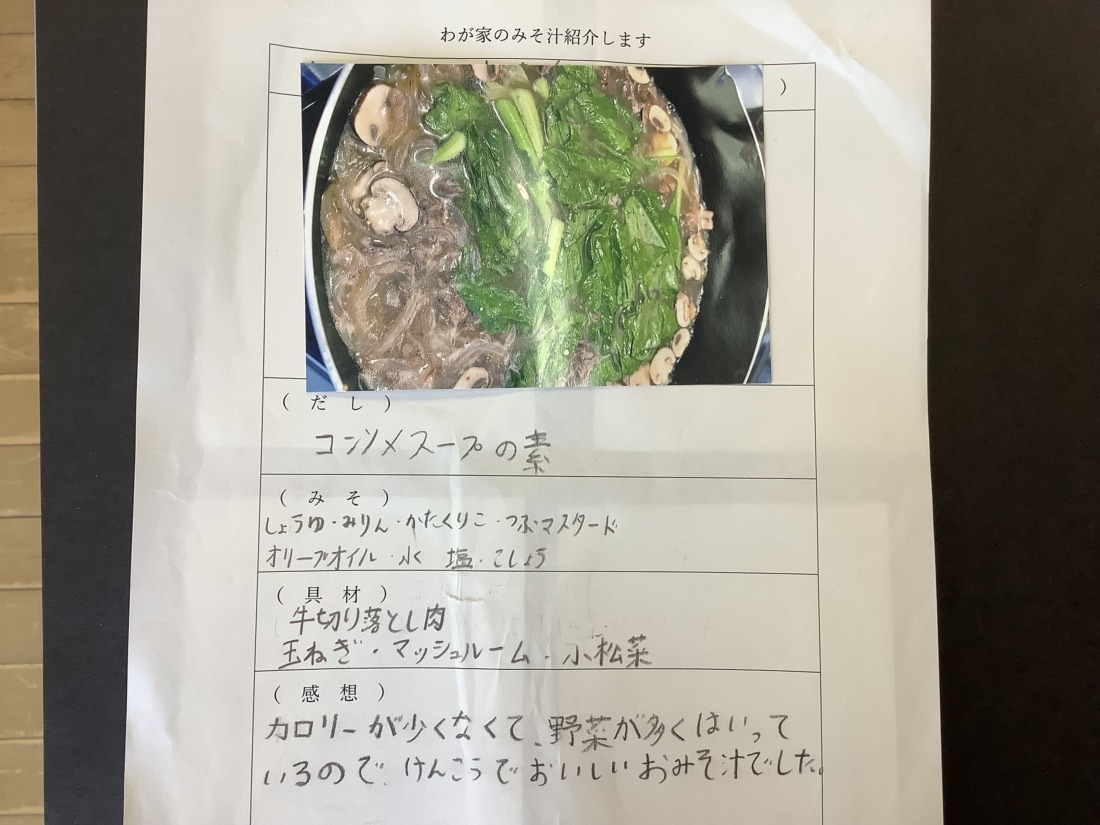 わが家のみそ汁紹介します
)
( だ し )
コンソメスープの素
( み そ )
しょうゆ・みりん・かたくりこ・つぶマスタード
オリーブオイル・水 塩・こしょう
( 具 材 )
牛切り落とし肉
玉ねぎ・マッシュルーム・小松菜
( 感 想 )
カロリーが少くなくて、野菜が多くはいって
いるので、けんこうでおいしいおみそ汁でした。